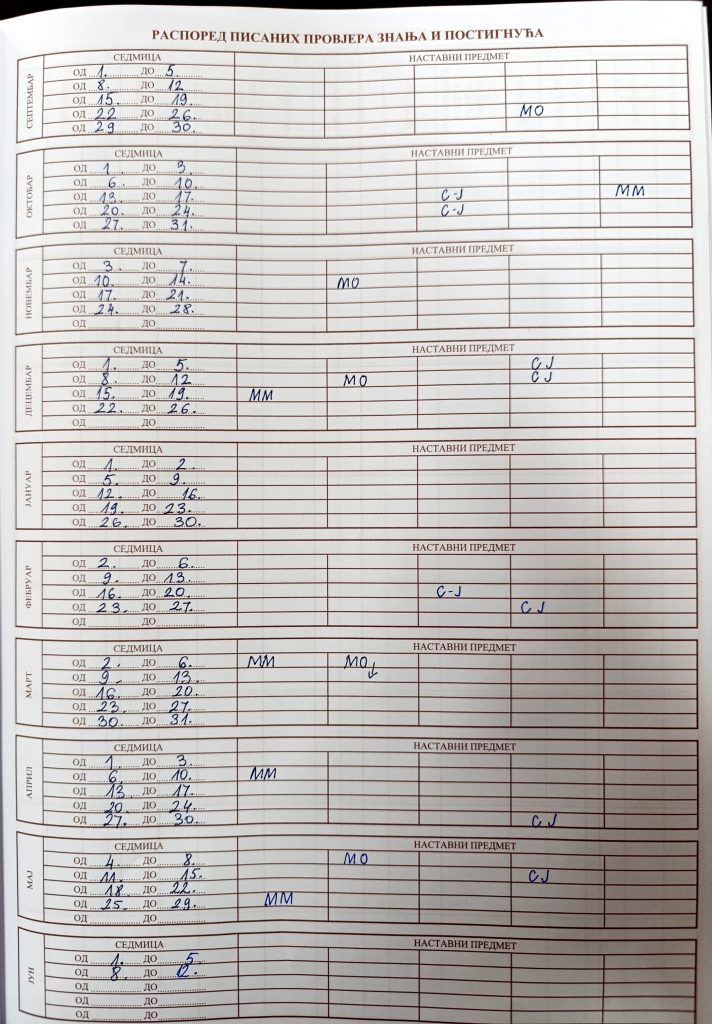 РАСПОРЕД ПИСАНИХ ПРОВЈЕРА ЗНАЊА И ПОСТИГНУЋА
СЕПТЕМБАР
СЕДМИЦА НАСТАВНИ ПРЕДМЕТ
ОД 1. ДО 5.
ОД 8. ДО 12
ОД 15. ДО 19.
ОД 22 ДО 26. МО
ОД 29 ДО 30.
ОКТОБАР
СЕДМИЦА НАСТАВНИ ПРЕДМЕТ
ОД 1 ДО 3.
ОД 6. ДО 10.
ОД 13. ДО 17. С-Ј ММ
ОД 20. ДО 24. С-Ј
ОД 27. ДО 31.
НОВЕМБАР
СЕДМИЦА НАСТАВНИ ПРЕДМЕТ
ОД 3. ДО 7.
ОД 10. ДО 14. МО
ОД 17. ДО 21.
ОД 24. ДО 28.
ОД ДО
ДЕЦЕМБАР
СЕДМИЦА НАСТАВНИ ПРЕДМЕТ
ОД 1. ДО 5. СЈ
ОД 8. ДО 12 МО СЈ
ОД 15. ДО 19. ММ
ОД 22. ДО 26.
ОД ДО
ЈАНУАР
СЕДМИЦА НАСТАВНИ ПРЕДМЕТ
ОД 1. ДО 2.
ОД 5. ДО 9.
ОД 12. ДО 16.
ОД 19. ДО 23.
ОД 26. ДО 30.
ФЕБРУАР
СЕДМИЦА НАСТАВНИ ПРЕДМЕТ
ОД 2. ДО 6.
ОД 9. ДО 13.
ОД 16. ДО 20. С-Ј
ОД 23. ДО 27. СЈ
ОД ДО
МАРТ
СЕДМИЦА НАСТАВНИ ПРЕДМЕТ
ОД 2. ДО 6. ММ МО
ОД 9 ДО 13.
ОД 16. ДО 20.
ОД 23. ДО 27.
ОД 30. ДО 31.
АПРИЛ
СЕДМИЦА НАСТАВНИ ПРЕДМЕТ
ОД 1. ДО 3.
ОД 6. ДО 10. ММ
ОД 13. ДО 17.
ОД 20 ДО 24.
ОД 27. ДО 30. СЈ
МАЈ
СЕДМИЦА НАСТАВНИ ПРЕДМЕТ
ОД 4. ДО 8. МО
ОД 11. ДО 15. СЈ
ОД 18. ДО 22.
ОД 25. ДО 29. ММ
ОД ДО
ЈУН
СЕДМИЦА НАСТАВНИ ПРЕДМЕТ
ОД 1. ДО 5.
ОД 8. ДО 12.
ОД ДО
ОД ДО
ОД ДО